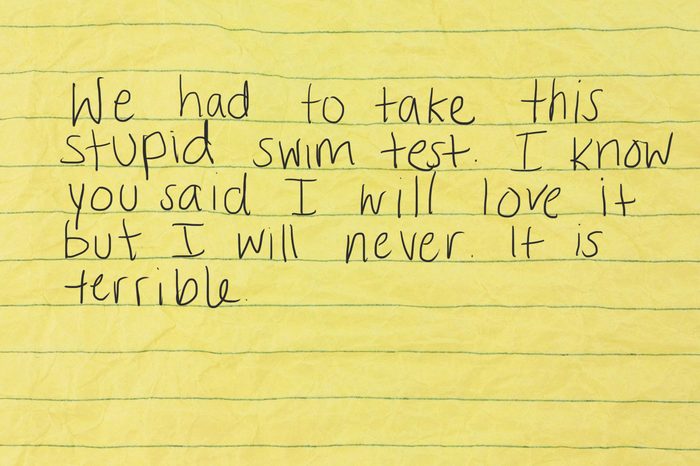 We had to take this
stupid swim test. I know
you said I will love it
but I will never. It is
terrible.